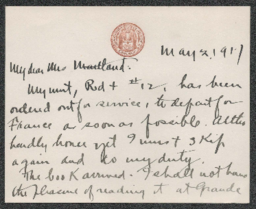 May 2, 1917
My dear Mrs Moreland:
My unit, Red + #12, has been
ordered out for service, to depart for
France as soon as possible. Altho
hardly home yet I must
again and do my duty.
The book arrived - I shall not have
the pleasure of reading it at Grande